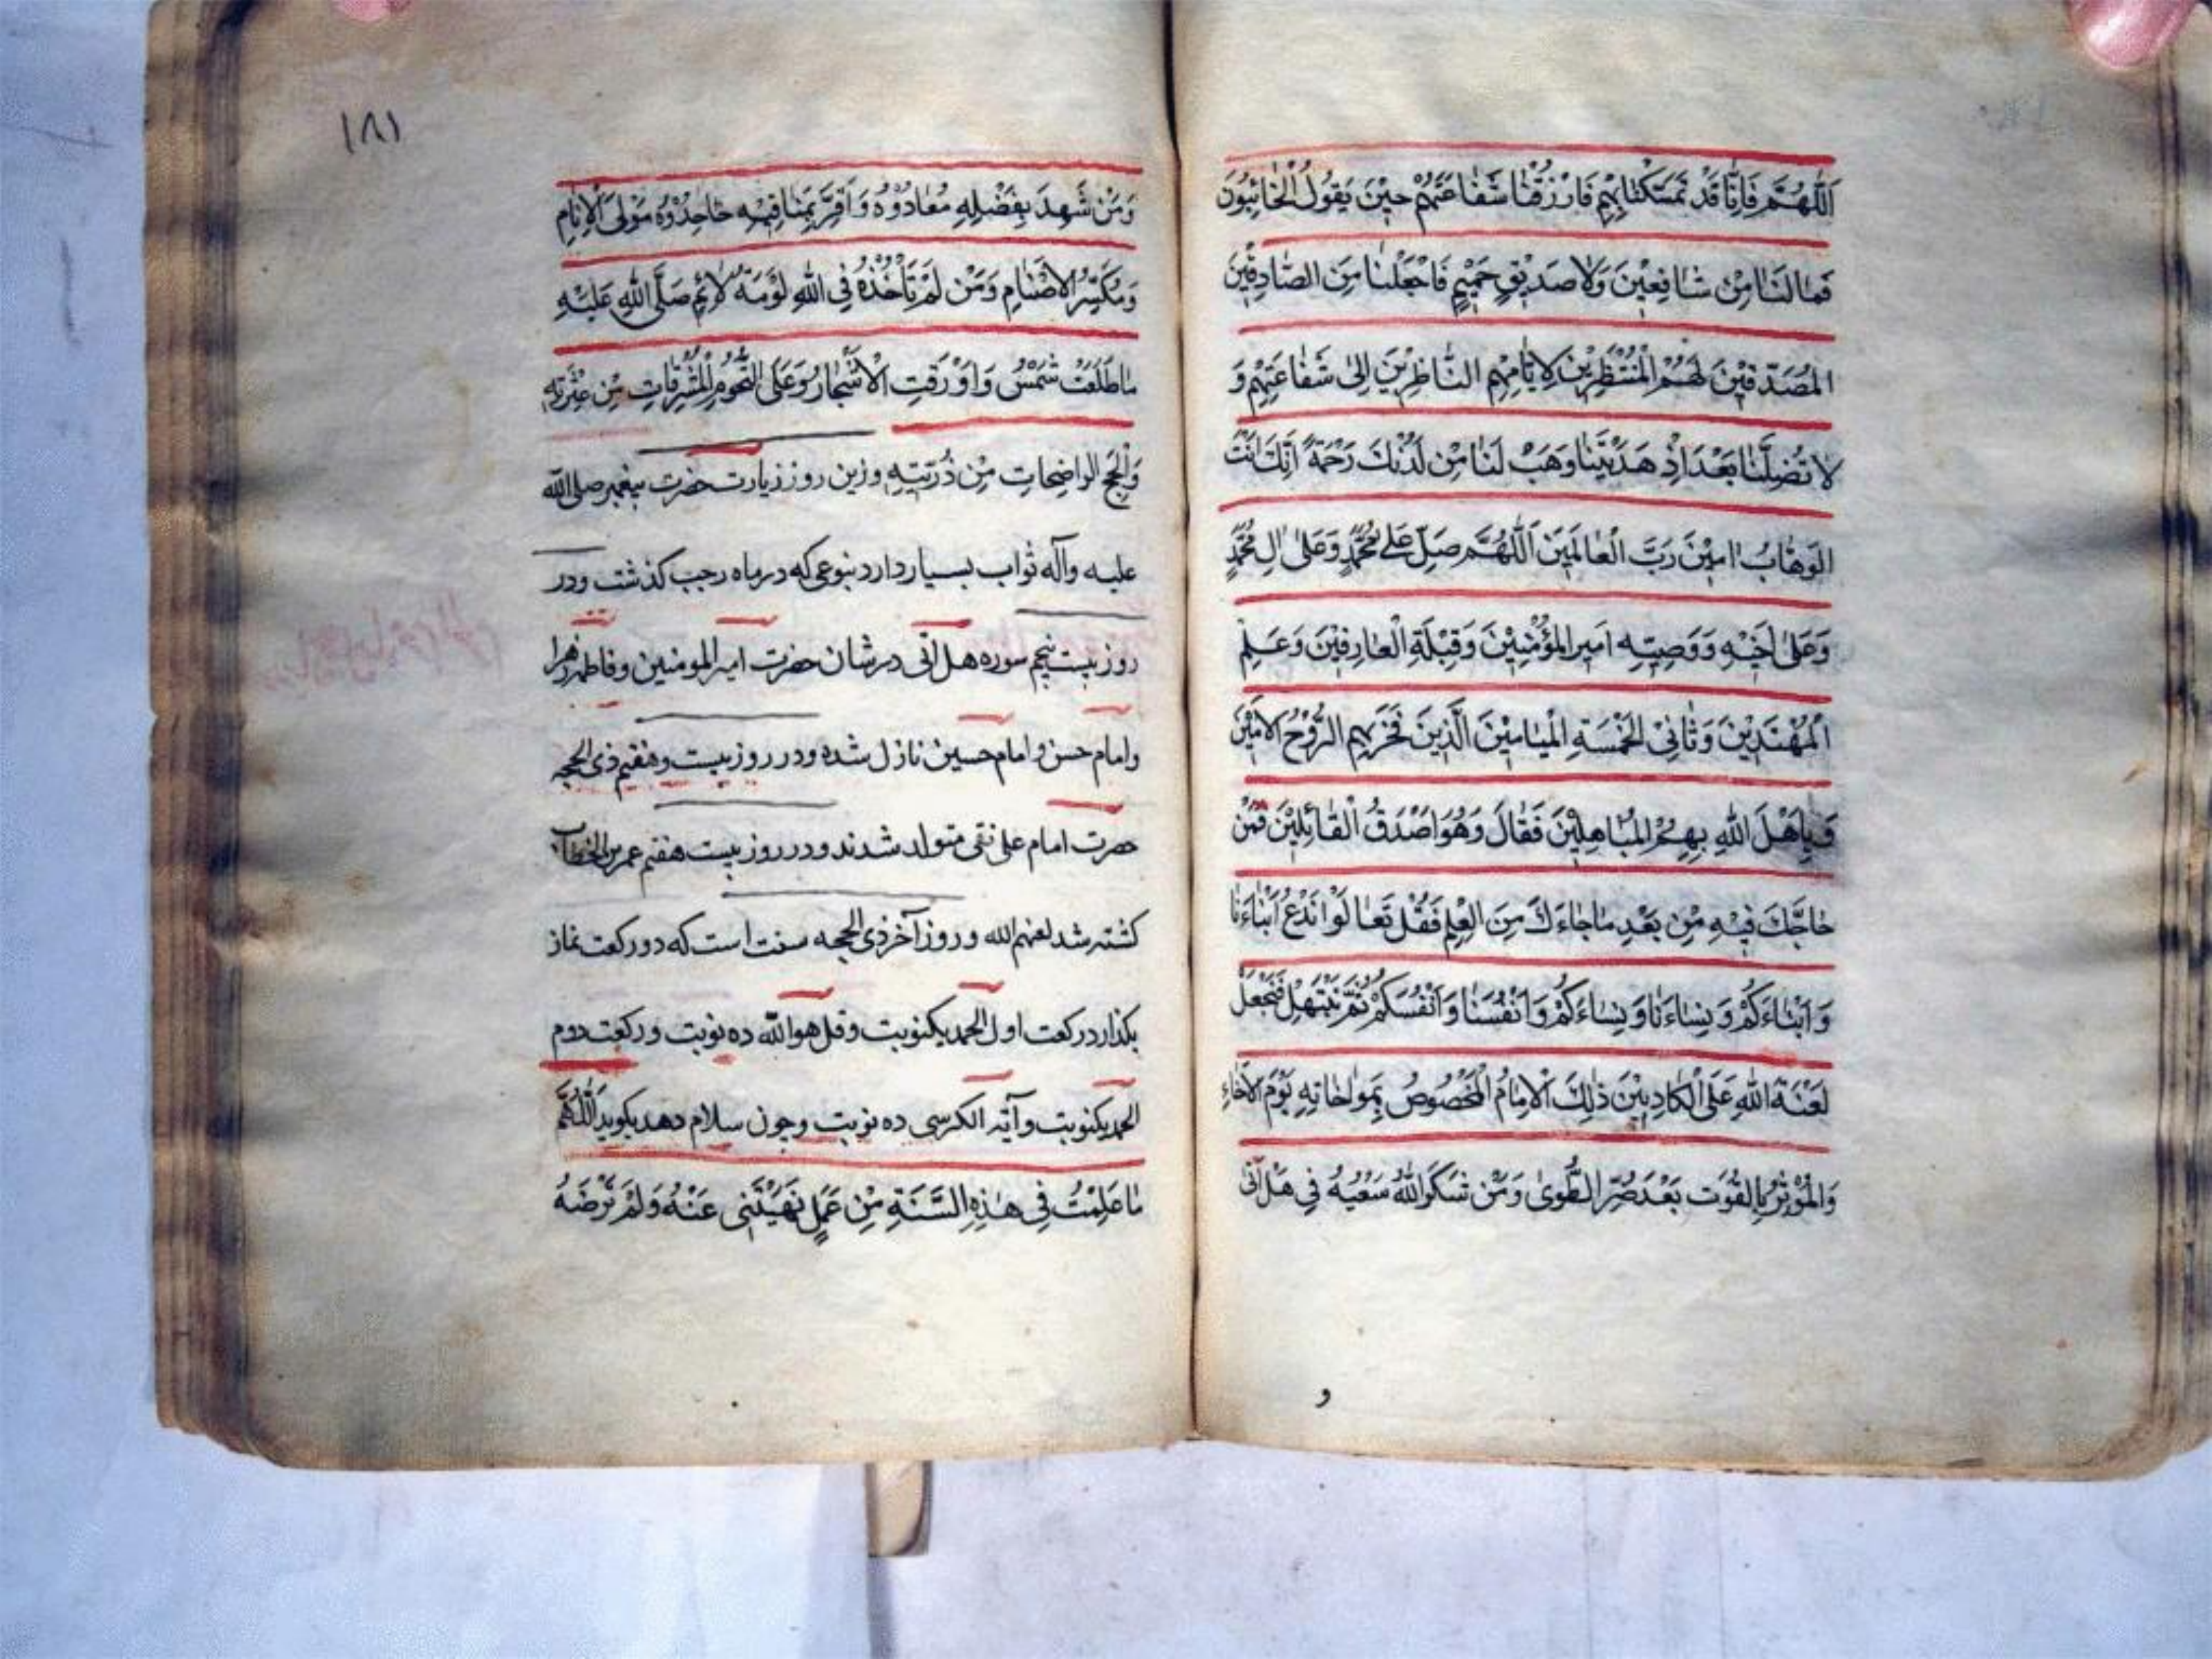 اَللّٰهُمَّ فَاِنَّا قَدْ تَمَسَّكْنَا بِهِمْ فَارْزُقْنَا شَفَاعَتَهُمْ حِيْنَ يَقُولُ الْخَائِبُونَ
فَمَا لَنَا مِنْ شَافِعِيْنَ وَلَا صَدِيْقٍ حَمِيْمٍ فَاجْعَلْنَا مِنَ الصَّادِقِيْنَ
المُصَدِّقِيْنَ لَهُمْ الْمُنْتَظِرِيْنَ لِاَيَّامِهِمِ النَّاظِرِيْنَ اِلٰى شَفَاعَتِهِمْ وَ
لَا تُضِلَّنَا بَعْدَ اِذْ هَدَيْتَنَا وَهَبْ لَنَا مِنْ لَدُنْكَ رَحْمَةً اِنَّكَ اَنْتَ
الْوَهَّابُ اٰمِيْنَ رَبَّ الْعَالَمِيْنَ اَللّٰهُمَّ صَلِّ عَلٰى مُحَمَّدٍ وَعَلٰى اٰلِ مُحَمَّدٍ
وَعَلٰى اَخِيْهِ وَوَصِيِّهِ اَمِيرِ المُؤْمِنِيْنَ وَقِبْلَةِ الْعَارِفِيْنَ وَعَلَمِ
الْمُهْتَدِيْنَ وَثَانِىْ الْخَمْسَةِ الْمَيَامِيْنَ الَّذِينَ فَخَرَ بِهِمِ الرُّوْحُ الْاَمِيْنُ
وَبَاهَلَ اللّٰهِ بِهِمُ المُبَاهِلِيْنَ فَقَالَ وَهُوَ اَصْدَقُ الْقَائِلِيْنَ فَمَنْ
حَاجَّكَ فِيْهِ مِنْ بَعْدِ مَا جَاءَكَ مِنَ الْعِلْمِ فَقُلْ تَعَالَوْا نَدْعُ اَبْنَاءَنَا
وَاَبْنَاءَكُمْ وَنِسَاءَنَا وَنِسَاءَكُمْ وَاَنْفُسَنَا وَاَنْفُسَكُمْ ثُمَّ نَبْتَهِلْ فَنَجْعَلْ
لَعْنَةَ اللّٰهِ عَلَى الْكَاذِبِيْنَ ذٰلِكَ الْاِمَامُ الْمَخْصُوصُ بِمُواخَاتِهِ يَوْمَ الْاِخَاءِ
وَالْمُؤْثِرُ بِالْقُوْتِ بَعْدَ ضُرِّ الطُّوىٰ وَمَنْ شَكَرَ اللّٰهُ سَعْيَهُ فِي هَلْ اَتٰى
و
١٨١
وَمَنْ شَهِدَ بِفَضْلِهِ مُعَادُوْهُ وَاَقَرَّ بِمَنَاقِبِهِ جَاحِدُوْهُ مَوْلَى الْاَنَامِ
وَمُكَسِّرُ الْاَصْنَامِ وَمَنْ لَمْ تَأْخُذْهُ فِي اللّٰهِ لَوْمَةُ لَائِمٍ صَلَّى اللّٰهِ عَلَيْهِ
مَا طَلَعَتْ شَمْسٌ وَاَوْرَقَتِ الْاَشْجَارُ وَعَلَى النُّجُومِ الْمُشْرِقَاتِ مِنْ عِتْرَتِهِ
وَالْحُجَجِ الواضِحَاتِ مِنْ ذُرِّيَّتِهِ وزین روز زیارت حضرت پیغمبر صلی الله
علیه وآله ثواب بسیار دارد بنوعی که در ماه رجب کذشت ودر
روز بیست پنجم سوره هل اتی در شان حضرت امیر المومنین وفاطمه زهرا
وامام حسن وامام حسین نازل شده ودر روز بیست وهفتم ذی الحجه
حضرت امام علی نقی متولد شدند ودر روز بیست هفتم عمر بن الخطاب
کشته شد لعنهم الله وروز آخر ذی الحجه سنت است که دو رکعت نماز
بکذارد رکعت اول الحمد یکنوبت وقل هو الله ده نوبت ورکعت دوم
الحمد یکنوبت وآیة الکرسی ده نوبت وچون سلام دهد بکوید اَللّٰهُمَّ
مَا عَلِمْتُ فِي هٰذِهِ السَّنَةِ مِنْ عَمَلٍ نَهَيْتَنِى عَنْهُ وَلَمْ تَرْضَهُ